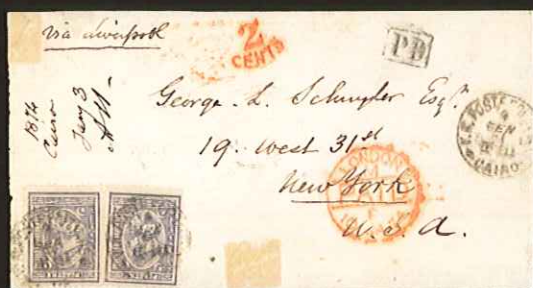 via Liverpool
2
CENTS
PD
1874
Cairo
Jany 3
George. L. Schuyler Esqr.
19. West 31st
New York
U. S. A.
LONDON
PAID
POSTE
GEN
CAIRO